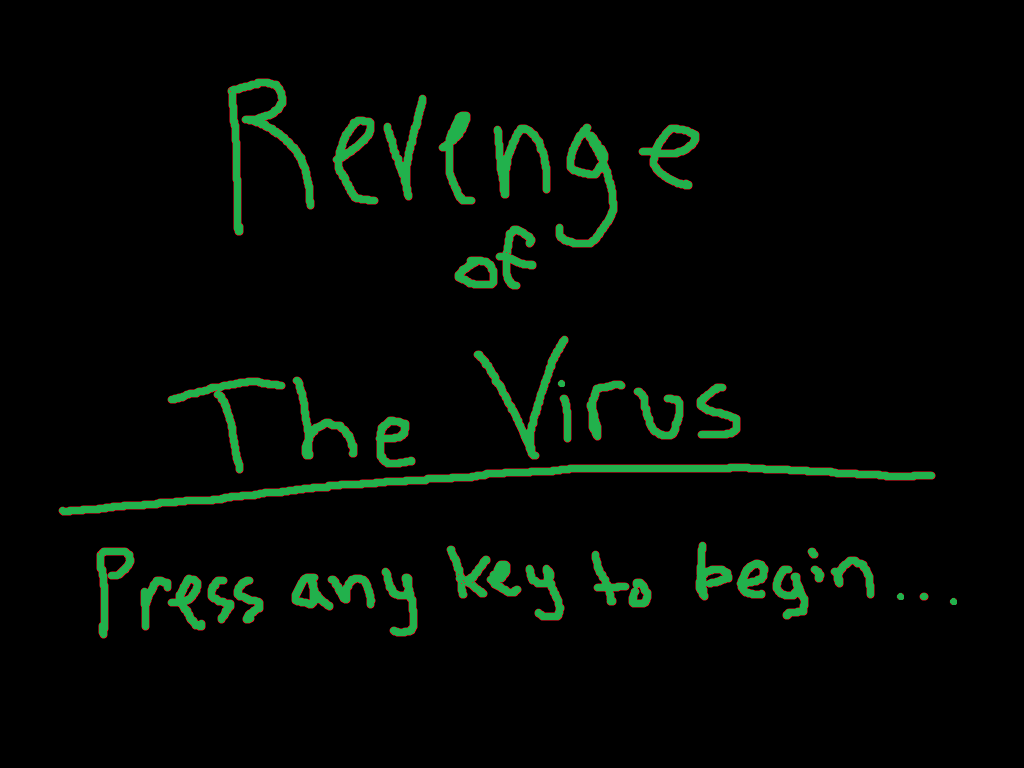 Revenge
of
The Virus
Press any key to begin...